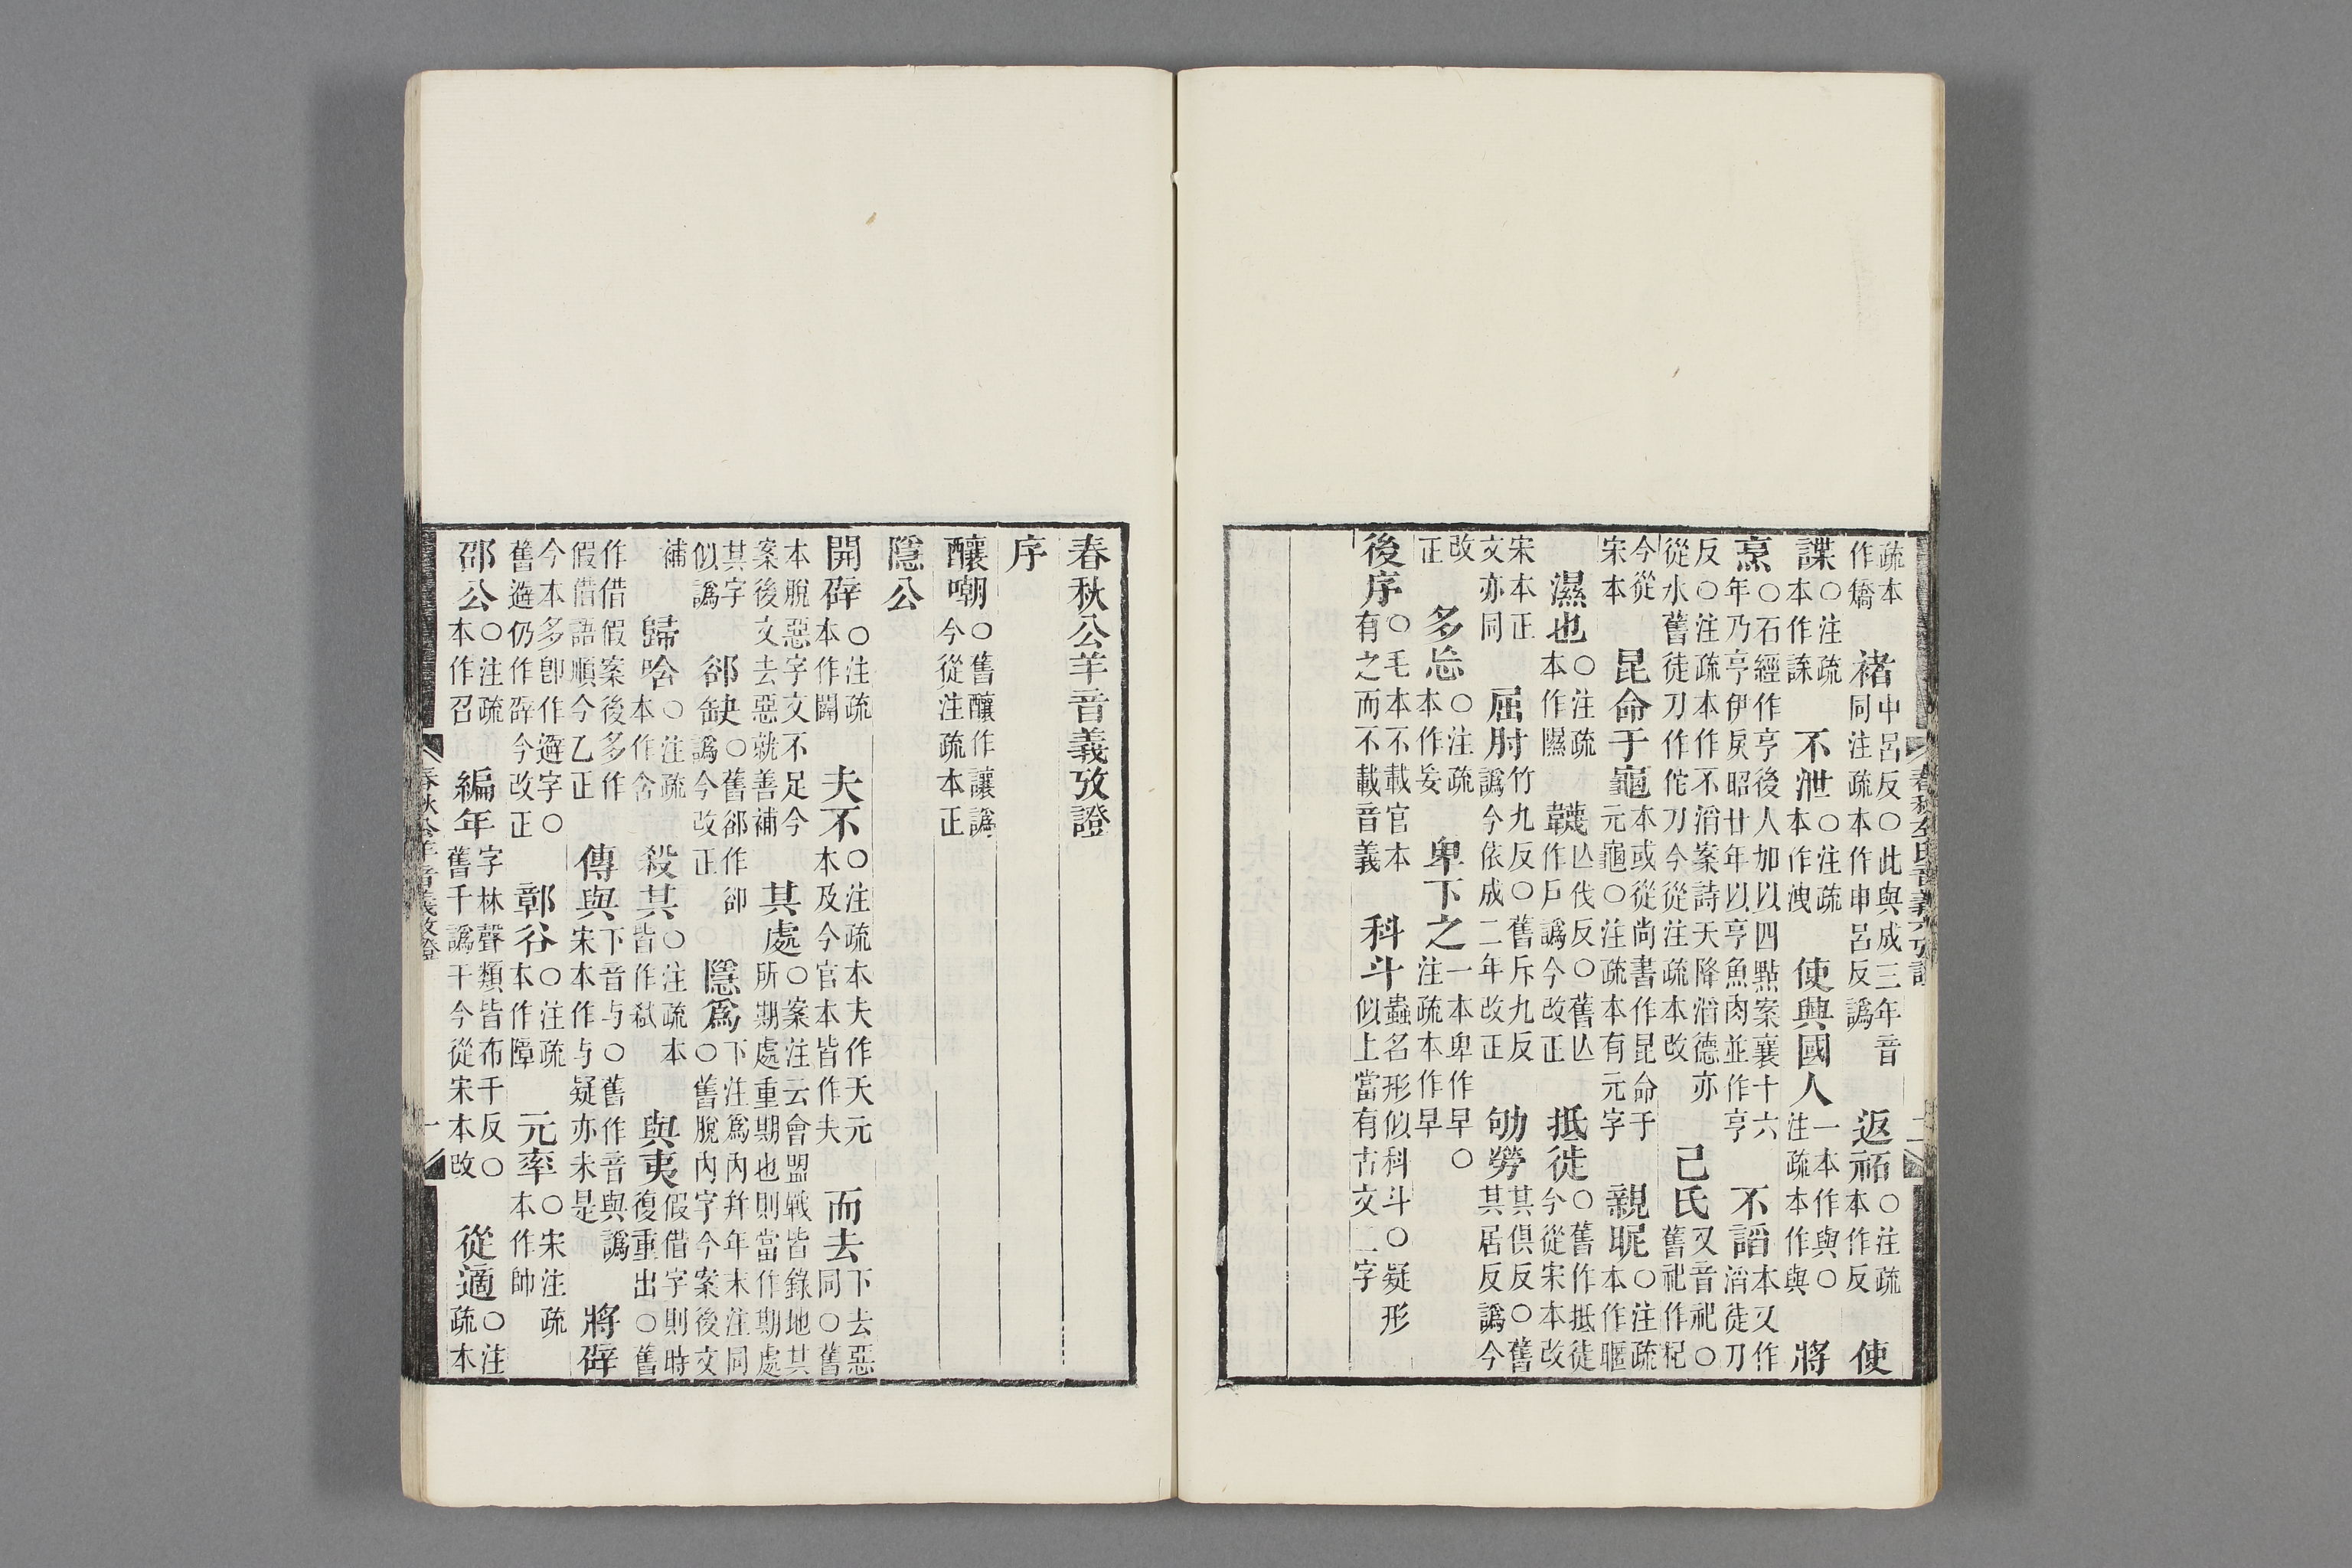 春秋左氏音義六攷證
二
疏本作矯褚中呂反○此與成三年音同注疏本作申呂反譌返祏○注疏本作反使
諜○注疏本作誅不泄○注疏本作洩使興國人一本作與○注疏本作與將
烹○石經作亨後人加以四點案襄十六年乃亨伊戾昭廿年以亨魚肉並作亨不謟本又作滔徒刀
反○注疏本作不滔案詩天降滔德亦從水舊徒刀作佗刀今從注疏本改己氏又音祀○舊祀作杞
今從宋本昆命于龜本或從尚書作昆命于元龜○注疏本有元字親昵○注疏本作暱
濕也○注疏本作隰韤亾伐反○舊亾作戶譌今改正抵徒○舊作抵徒今從宋本改
宋本正文亦同屈肘竹九反○舊斥九反譌今依成二年改正劬勞其俱反○舊其居反譌今
改正多㤀○注疏本作妄卑下之一本卑作早○注疏本作早
後序○毛本不載官本有之而不載音義科斗蟲名形似科斗○疑形似上當有古文二字
春秋公羊音義攷證
序
釀嘲○舊釀作讓譌今從注疏本正
隱公
開辟○注疏本作闢夫不○注疏本夫作天元本及今官本皆作夫而去下去惡同○舊
本脫惡字文不足今案後文去惡就善補其處○案注云會盟戰皆錄地其所期處重期也則當作期處
其字似譌郤缺○舊郤作卻譌今改正隱爲下注爲內幷年末注同○舊脫內字今案後文
補歸唅○注疏本作含殺其○注疏本皆作弒與夷假借字則時復重出○舊
作借假案後多作假借語順今乙正傳與下音与○舊作音與譌宋本作与疑亦未是將辟
今本多卽作避字○舊避仍作辟今改正鄣谷○注疏本作障元率○宋注疏本作帥
邵公○注疏本作召編年字林聲類皆布干反○舊干譌于今從宋本改從適○注疏本
春秋公羊音義攷證
一